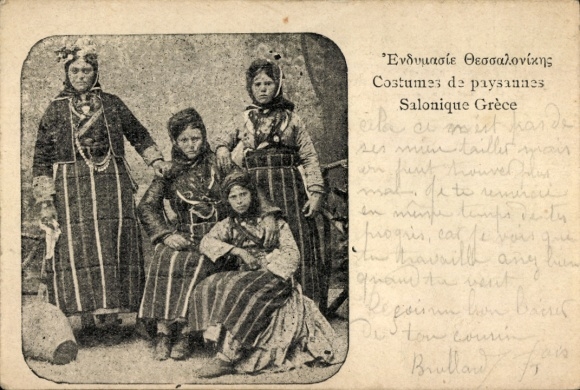 Ἐνδυμασίε Θεσσαλονίκης
Costumes de paysannes
Salonique Grèce
cela ce n'est pas de
ses mieu tailler mais
on peut trouver plus
mal. Je te remercie
en même temps de tes
progrès, car je vois que
tu travaille assez bien
quand tu veut.
Reçois un bon baiser
de ton cousin